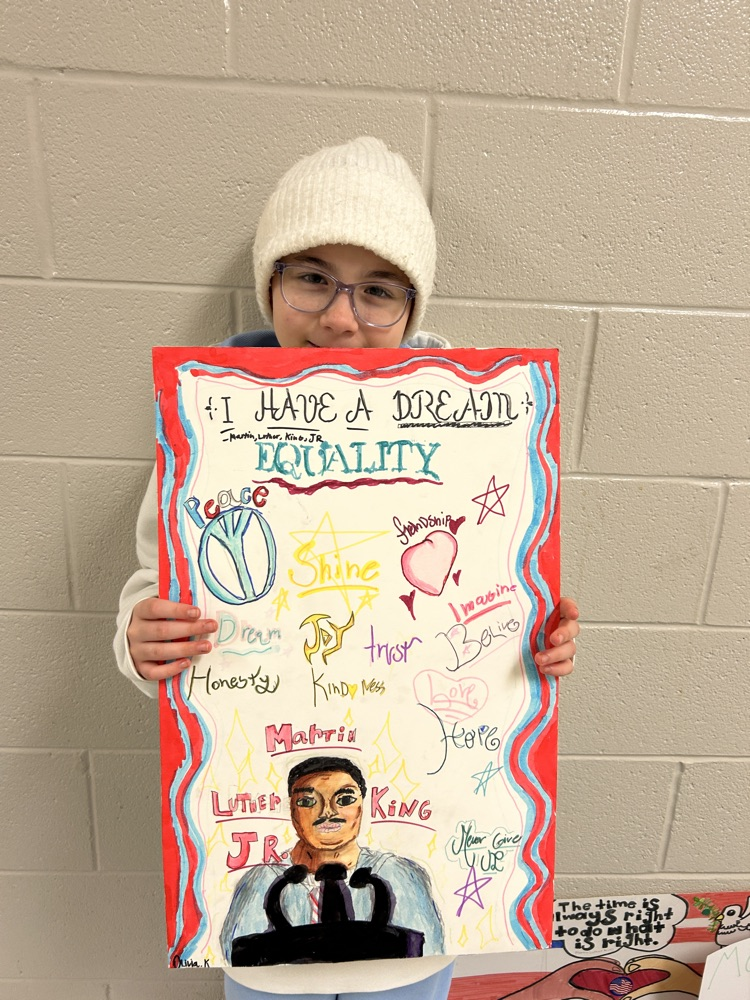 I HAVE A DREAM
-Martin, Luther, King, JR
EQUALITY
Peace
Shine
friendship
Imagine
Dream
JOY
trust
Belive
Honesty
KindNess
Love
Hope
Martin
LUTHER KING
JR.
Never Give
UP
Olivia. K
The time is
always right
to do what
is right.